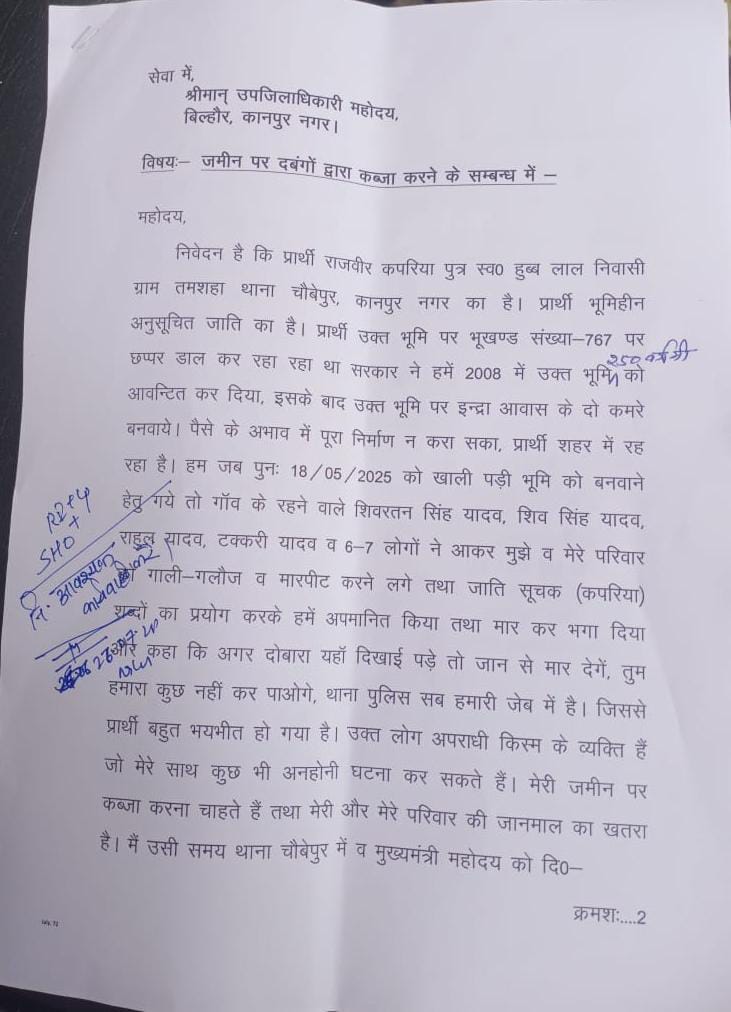 सेवा में,
श्रीमान् उपजिलाधिकारी महोदय,
बिल्हौर, कानपुर नगर।
विषयः– जमीन पर दबंगों द्वारा कब्जा करने के सम्बन्ध में –
महोदय,
निवेदन है कि प्रार्थी राजवीर कपरिया पुत्र स्व0 हुब्ब लाल निवासी
ग्राम तमशहा थाना चौबेपुर, कानपुर नगर का है। प्रार्थी भूमिहीन
अनुसूचित जाति का है। प्रार्थी उक्त भूमि पर भूखण्ड संख्या–767 पर
छप्पर डाल कर रहा रहा था सरकार ने हमें 2008 में उक्त भूमि को
250
आवन्टित कर दिया, इसके बाद उक्त भूमि पर इन्द्रा आवास के दो कमरे
बनवाये। पैसे के अभाव में पूरा निर्माण न करा सका, प्रार्थी शहर में रह
रहा है। हम जब पुनः 18/05/2025 को खाली पड़ी भूमि को बनवाने
हेतु गये तो गॉव के रहने वाले शिवरतन सिंह यादव, शिव सिंह यादव,
राहुल यादव, टक्करी यादव व 6–7 लोगों ने आकर मुझे व मेरे परिवार
गाली–गलौज व मारपीट करने लगे तथा जाति सूचक (कपरिया)
शब्दों का प्रयोग करके हमें अपमानित किया तथा मार कर भगा दिया
और कहा कि अगर दोबारा यहॉ दिखाई पड़े तो जान से मार देगें, तुम
हमारा कुछ नहीं कर पाओगे, थाना पुलिस सब हमारी जेब में है। जिससे
प्रार्थी बहुत भयभीत हो गया है। उक्त लोग अपराधी किस्म के व्यक्ति हैं
जो मेरे साथ कुछ भी अनहोनी घटना कर सकते हैं। मेरी जमीन पर
कब्जा करना चाहते हैं तथा मेरी और मेरे परिवार की जानमाल का खतरा
है। मैं उसी समय थाना चौबेपुर में व मुख्यमंत्री महोदय को दि0–
क्रमशः....2
SHO
नि. आवश्यक